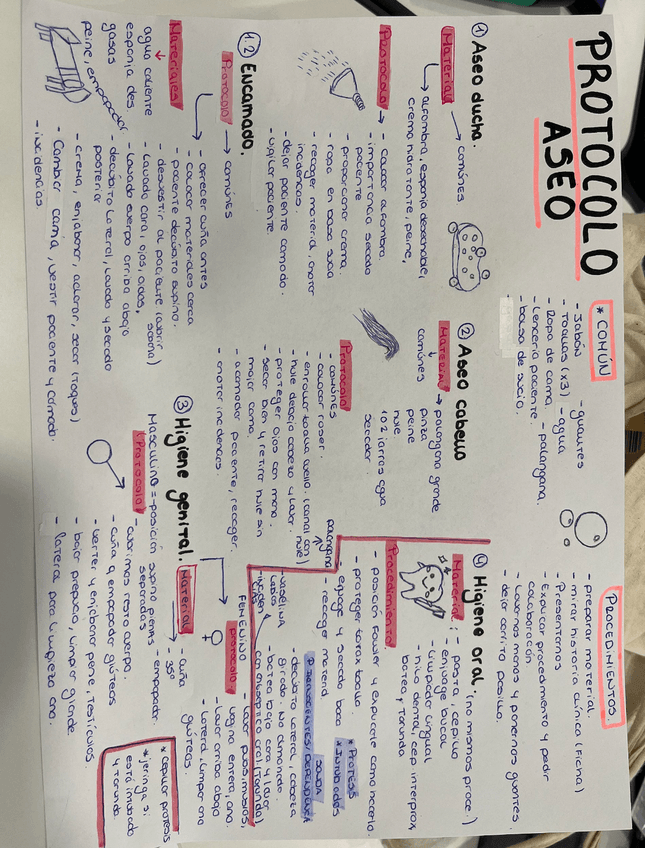 PROTOCOLO
ASEO
* COMÚN
- Jabón
- guantes
- Toallas (x3)
- agua
- Ropa de cama
- palangana.
- Lencería paciente
- bolsa de sucio.
PROCEDIMIENTOS.
- preparar material
- mirar historia clínica (ficha)
- Presentarnos
- Explicar procedimiento y pedir
colaboración
- Lavarnos manos y ponernos guantes.
- dejar carrito pasillo.
① Aseo ducha.
Material → comunes
↳ alfombra, esponja desechable,
crema hidratante, peine,
Protocolo → - colocar alfombra.
- importancia secado
paciente
- proporcionar crema.
- ropa en bolsa sucia
- recoger material, anotar
incidencias.
- dejar paciente comodo.
- vigilar paciente.
1.2 Encamado.
Protocolo → comunes
↳ - ofrecer cuña antes
- colocar materiales cerca
- paciente decúbito supino.
- desvestir al paciente (cubrir
sabana)
- lavado cara, ojos, oidos,
- lavado cuerpo arriba abajo
- decúbito lateral, lavado y secado
posterior
- crema, enjabonar, aclarar, secar (toques)
- Cambiar cama, vestir paciente y cómodo.
- incidencias.
Materiales
↓
agua caliente
esponja des
gasas
peine, empapador
② Aseo cabello
Material → palangana grande
↓ pinza
comunes peine
hule
1 o 2 jarras agua
secador.
Protocolo
- comunes
- colocar roser.
- enrollar toalla cuello. (canal con hule)
→ palangana
- hule debajo cabeza y lavar
- proteger ojos con mano.
- secar bien y retirar hule sin
mojar cama.
- acomodar paciente, recoger.
- anotar incidencias.
③ Higiene genital.
Material → - cuña
- 35º
- empapador.
Masculino = - posición supino piernas
separadas
Protocolo
- cubrimos resto cuerpo.
- cuña y empapador glúteos
- verter y enjabonar pene, testículos.
- bajar prepucio, limpiar glande
- lateral para limpieza ano.
FEMENINO
protocolo
- lavar pubis, muslos,
vagina entera, ano.
- lavar arriba abajo
- lateral, limpiar ano
glúteas.
④ Higiene oral (no mismos proce.)
Material: - pasta, cepillo
- enjuage bucal
- limpiador lingual
- hilo dental, cep interprox
batea, torunda
Procedimiento
- posición Fowler y explicarle como hacerlo.
- proteger torax toalla.
- enjuage y secado boca
- recoger material
* Prótesis
* Intubados
* INCONSCIENTES/DEPENDIENTES
SONDA
- decúbito lateral, cabeza
girado. No almohada.
- batea bajo cara y lavar
con antiséptico oral (torunda)
- vaselina
labios
- incidencias
* Cepillar prótesis
* jeringa si
está intubado
y torunda.